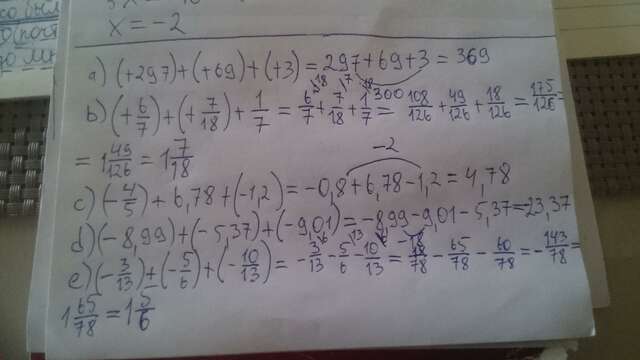 x = -2
a) (+297)+(+69)+(+3) = 297+69+3 = 369
300
b) (+6/7)+(+7/18)+1/7 = 6/7+7/18+1/7 = 108/126+49/126+18/126 = 175/126 =
= 1 49/126 = 1 7/18
-2
c) (-4/5)+6,78+(-1,2) = -0,8+6,78-1,2 = 4,78
d) (-8,99)+(-5,37)+(-9,01) = -8,99-9,01-5,37=-23,37
-18
e) (-3/13)+(-5/6)+(-10/13) = -3/13-5/6-10/13 = -18/78-65/78-60/78 = -143/78 =
1 65/78 = 1 5/6